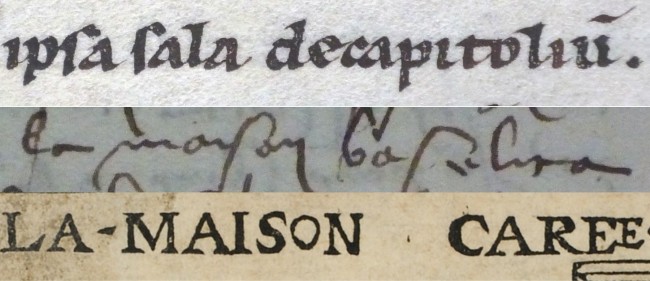 ipsa sala decapitoliū.
la maison baselica
LA-MAISON CAREE·